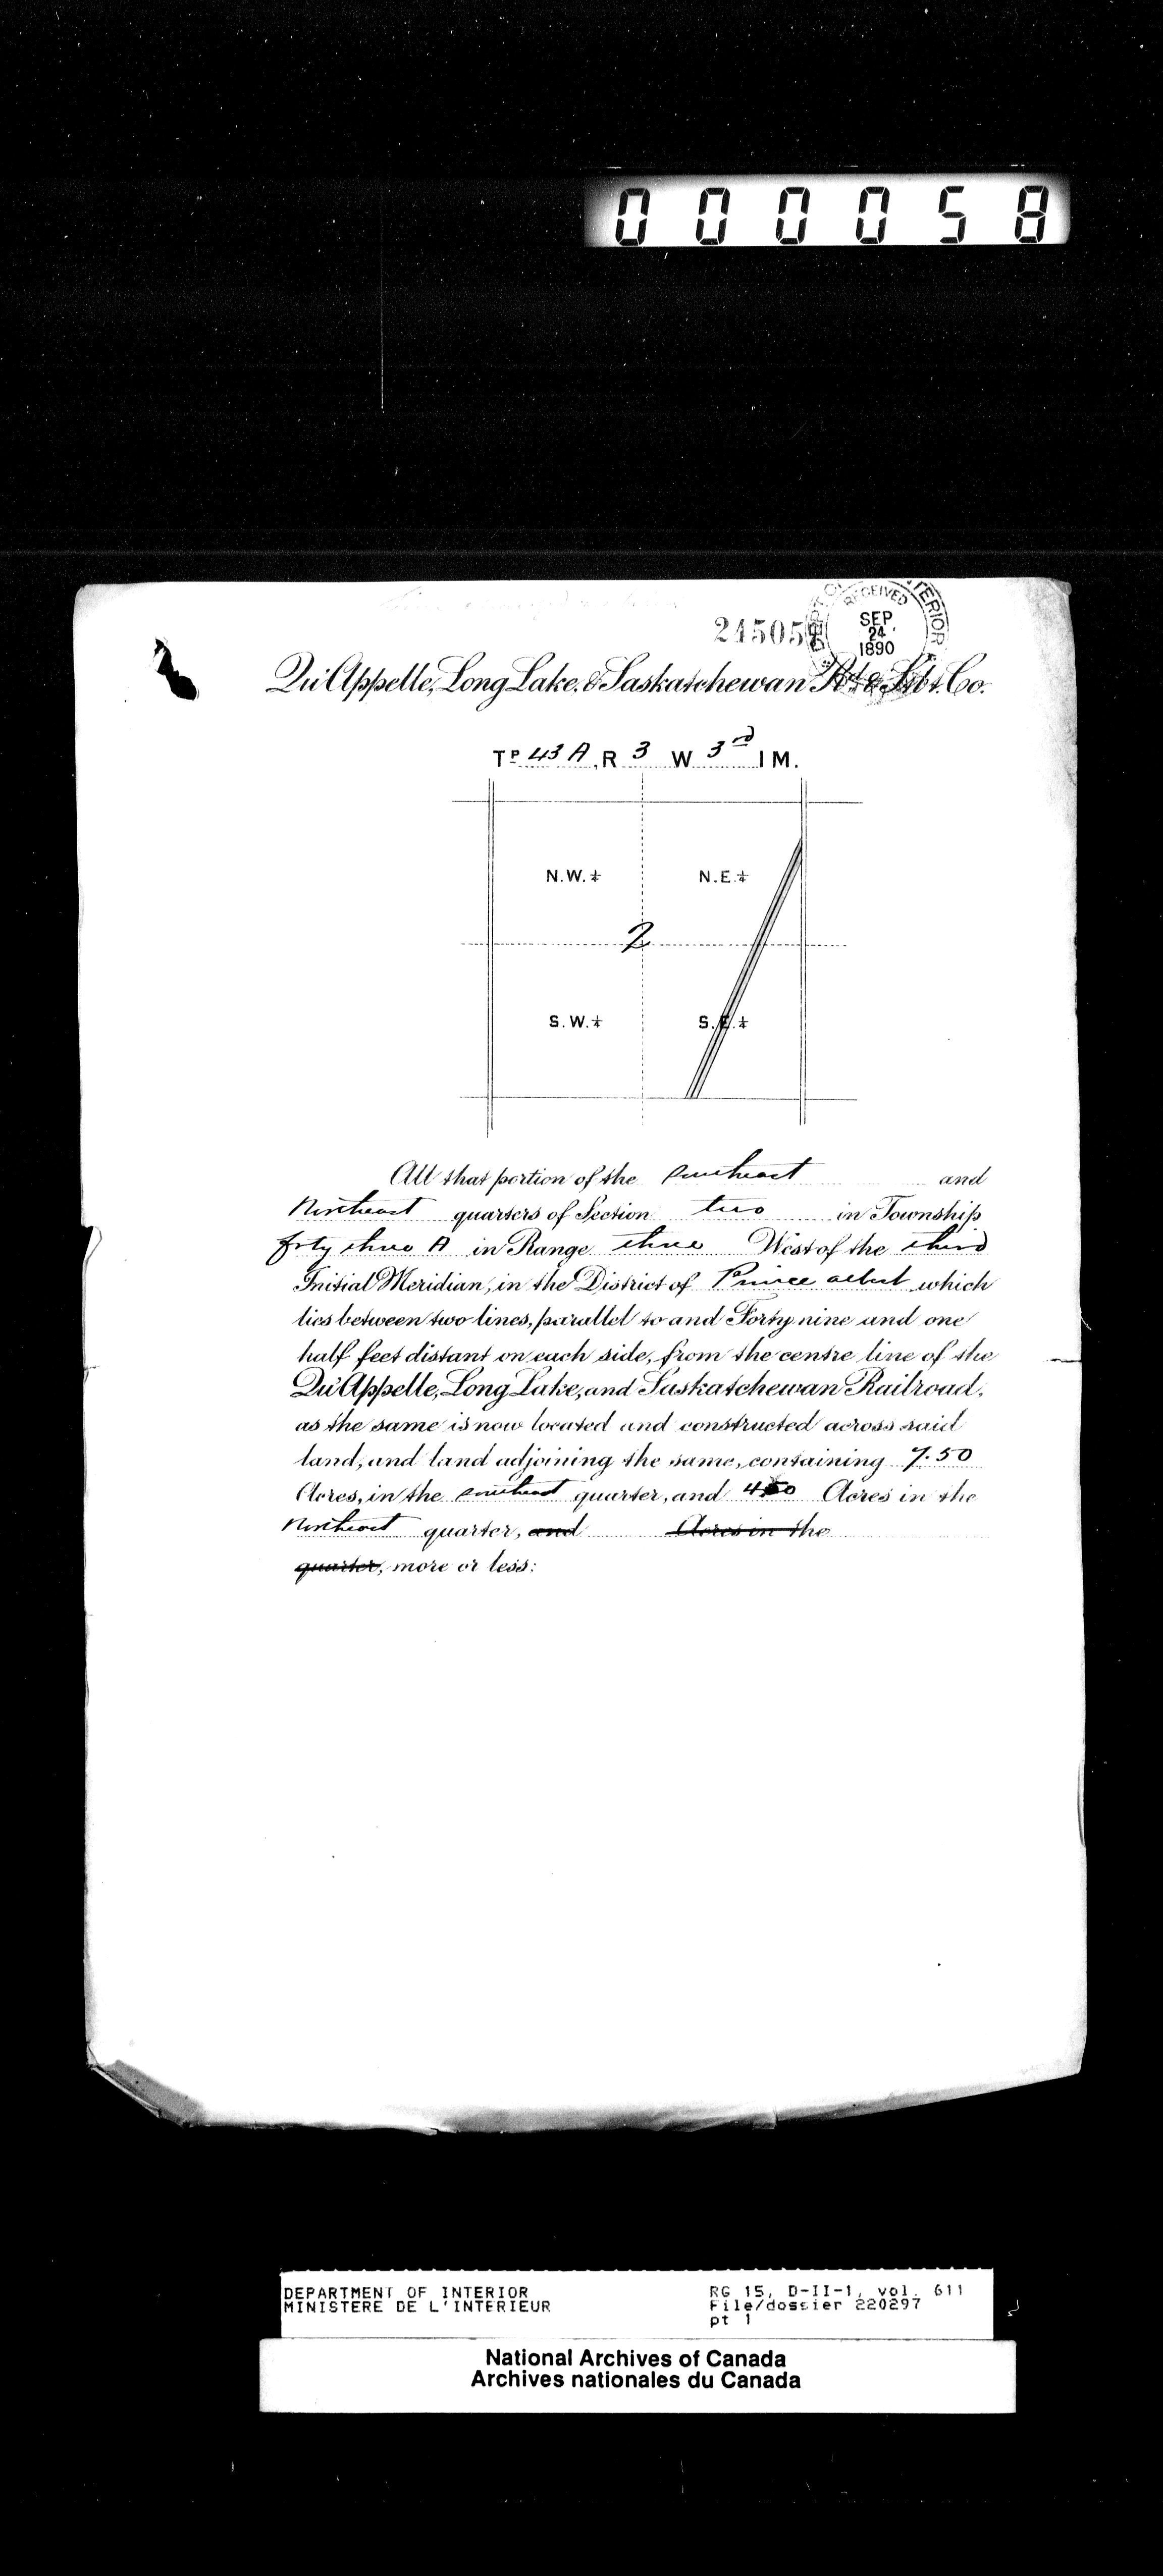 000058
24505
RECEIVED
SEP
24
1890
Qu'Appelle, Long Lake, & Saskatchewan Rd & Sbt. Co.
Tp 43 A, R 3 W 3rd I M.
N.W.¼ N.E.¼
2
S.W.¼ S.E.¼
All that portion of the Southeast and
Northeast quarters of Section two in Township
forty three A in Range three West of the third
Initial Meridian, in the District of Prince Albert which
lies between two lines, parallel to and Forty nine and one
half feet distant on each side, from the centre line of the
Qu'Appelle, Long Lake, and Saskatchewan Railroad,
as the same is now located and constructed across said
land, and land adjoining the same, containing 7.50
Acres, in the Southeast quarter, and Acres in the
Northeast quarter, and Acres in the
quarter, more or less:
DEPARTMENT OF INTERIOR RG 15, D-II-1, vol. 611
MINISTERE DE L'INTERIEUR File/dossier 220297
pt 1
National Archives of Canada
Archives nationales du Canada